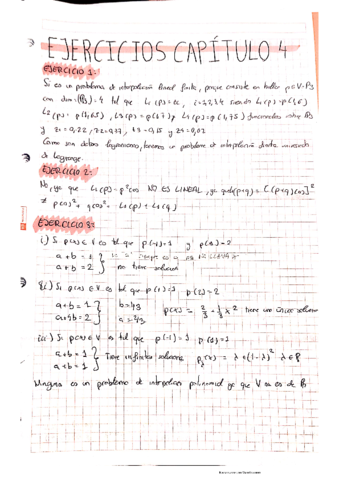 EJERCICIOS CAPÍTULO 4
EJERCICIO 1:
Si es un problema de interpolación lineal finita, porque consiste en hallar p∈V=P3
con dim(P3)=4 tal que Li(p)=zi, i=1,2,3,4 siendo L1(p)=p(1,6)
L2(p)=p(1,65), L3(p)=p(1,7) y L4(p)=p(1,75) funcionales sobre P3
y z1=0,22, z2=0,17, z3=0,15 y z4=0,02
Como son datos lagrangianos, tenemos un problema de interpolación
de Lagrange.
EJERCICIO 2:
No, ya que L1(p)=p²(x) NO ES LINEAL, ya que L(p+q)=[(p+q)(x)]²
≠ p(x)²+q(x)²= L1(p)+L1(q)
EJERCICIO 3:
i) Si p(x)∈V es tal que p(-1)=1 y p(1)=2
a+b=1
a+b=2 } no tiene solución
ii) Si p(x)∈V es tal que p(1)=1, p(2)=2
a+b=1
a+4b=2 } b=1/3
a=2/3
p(x)=2/3+1/3x² tiene una única solución
iii) Si p(x)∈V es tal que p(-1)=1, p(1)=1
a+b=1
a+b=1 } Tiene infinitas soluciones pλ(x)=λ+(1-λ)x² λ∈R
Ninguno es un problema de interpolación polinomial ya que V no es de Pn